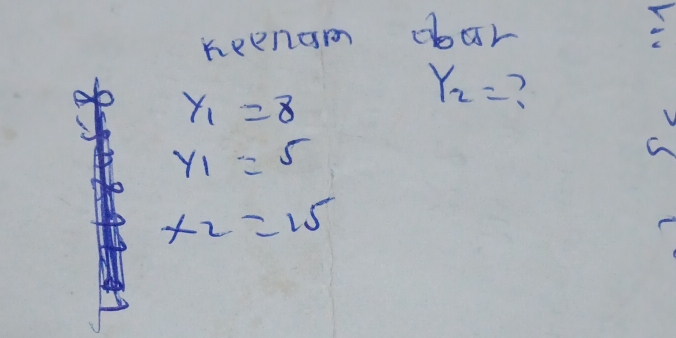 keenam abar
Y1 = 8 Y2 = ?
Y1 = 5
x2 = 15